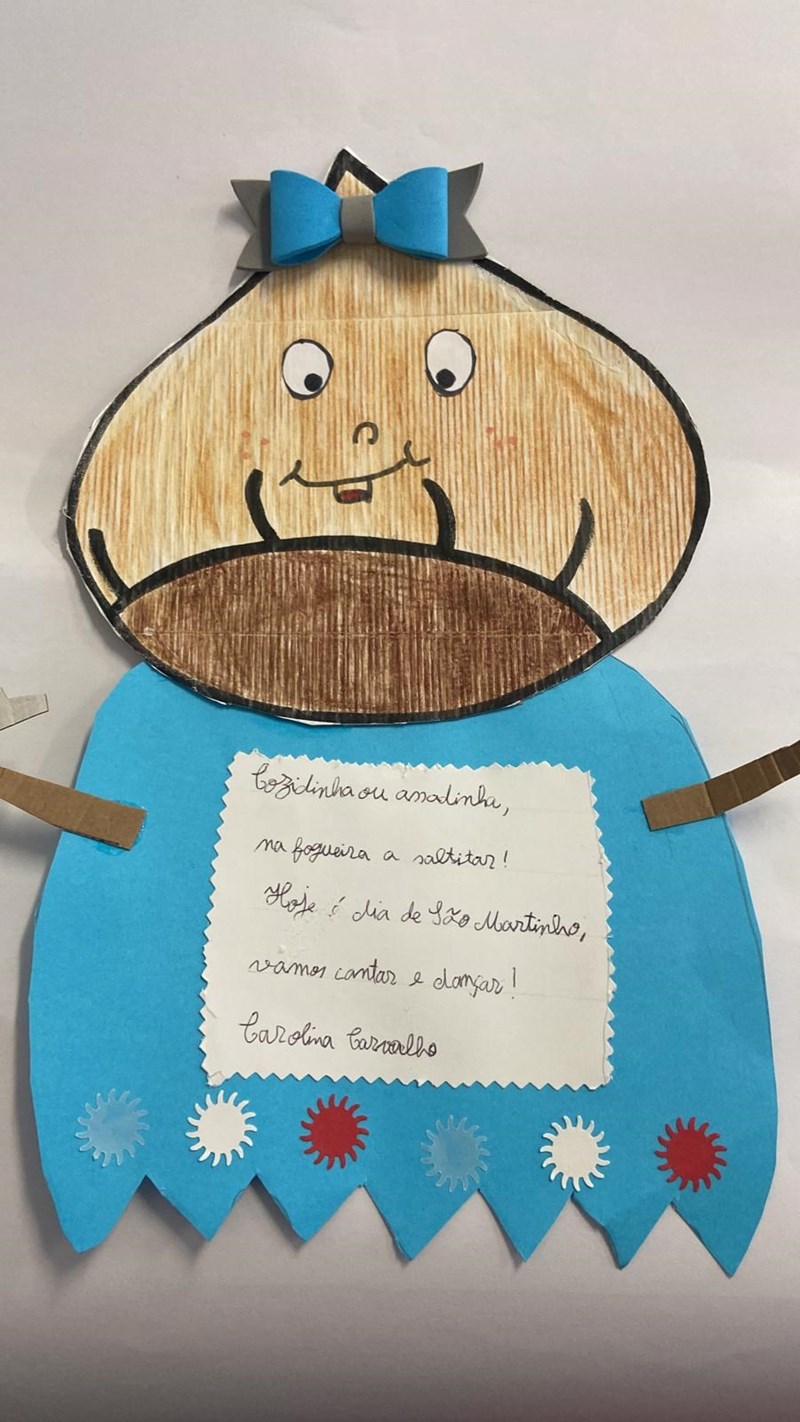 Cozidinha ou assadinha,
na fogueira a saltitar!
Hoje é dia de São Martinho,
vamos cantar e dançar!
Carolina Carvalho